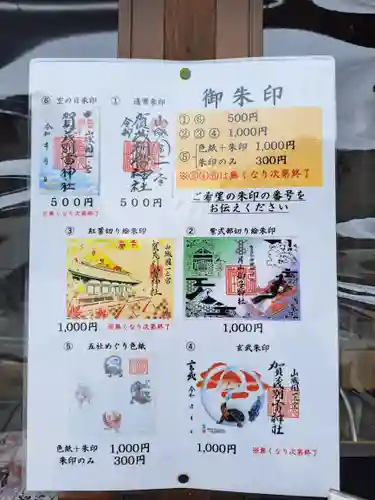 御朱印
①⑥ 500円
②③④ 1,000円
⑤ 色紙+朱印 1,000円
朱印のみ 300円
※③④⑤⑥は無くなり次第終了
ご希望の朱印の番号を
お伝えください
① 通常朱印
山城国一之宮
賀茂別雷神社
500円
⑥ 空の日朱印
山城国一之宮
賀茂別雷神社
500円
※無くなり次第終了
② 紫式部切り絵朱印
1,000円
③ 紅葉切り絵朱印
山城國一之宮
賀茂別雷神社
1,000円
※無くなり次第終了
④ 玄武朱印
山城國一之宮
賀茂別雷神社
玄武
1,000円
※無くなり次第終了
⑤ 五社めぐり色紙
色紙+朱印 1,000円
朱印のみ 300円